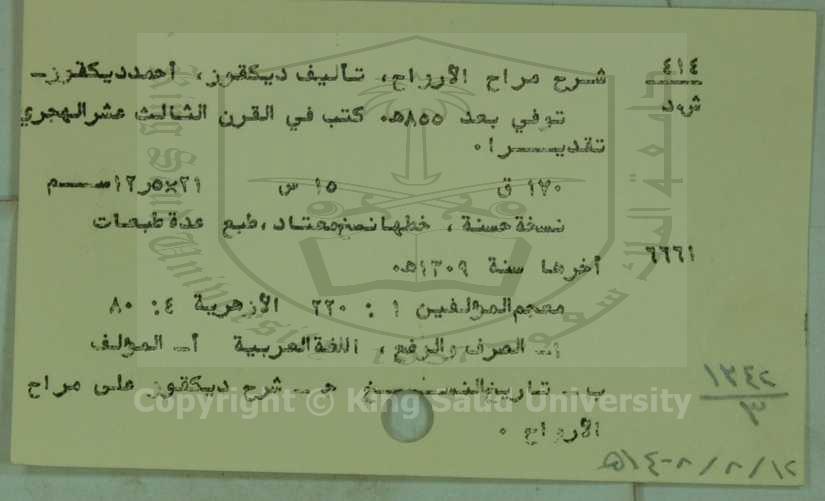 ٤١٤ شرح مراح الأرواح، تأليف ديكقوز، أحمد ديكقوز-
ش٠د توفي بعد ٨٥٥ه٠ كتب في القرن الثالث عشر الهجري
تقديـــرا٠
١٧٠ ق ١٥ س ٢١×١٢٫٥ ســم
٦٦٦١ نسخة حسنة، خطها نسخ معتاد، طبع عدة طبعات
آخرها سنة ١٣٠٩ه٠
معجم المؤلفين ١: ٢٢٠ الأزهرية ٤: ٨٠
١ــ الصرف والرفع، اللغة العربية أــ المؤلف
ب ــ تاريخ النســـخ جــ شرح ديكقوز على مراح
الأرواح٠
١٣٤٢
٣
Copyright © King Saud University
King Saud University